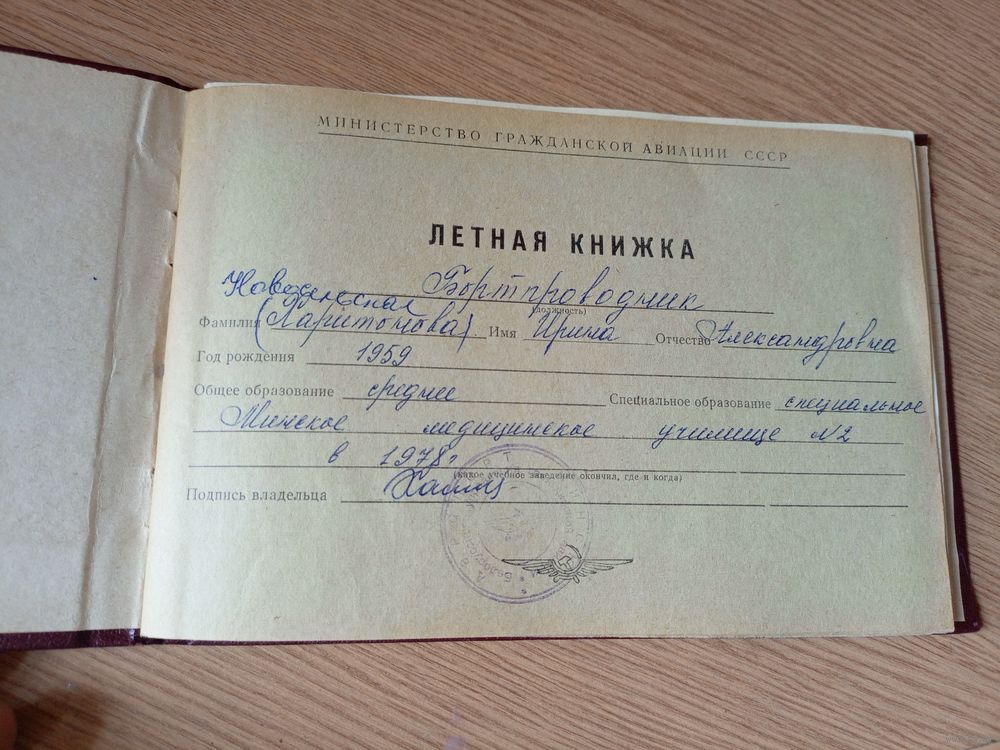 МИНИСТЕРСТВО ГРАЖДАНСКОЙ АВИАЦИИ СССР
ЛЕТНАЯ КНИЖКА
Бортпроводник
(должность)
Новосельская
Фамилия (Харитонова) Имя Ирина Отчество Александровна
Год рождения 1959
Общее образование среднее Специальное образование специальное
Минское медицинское училище N2
в 1978г
(какое учебное заведение окончил, где и когда)
Подпись владельца